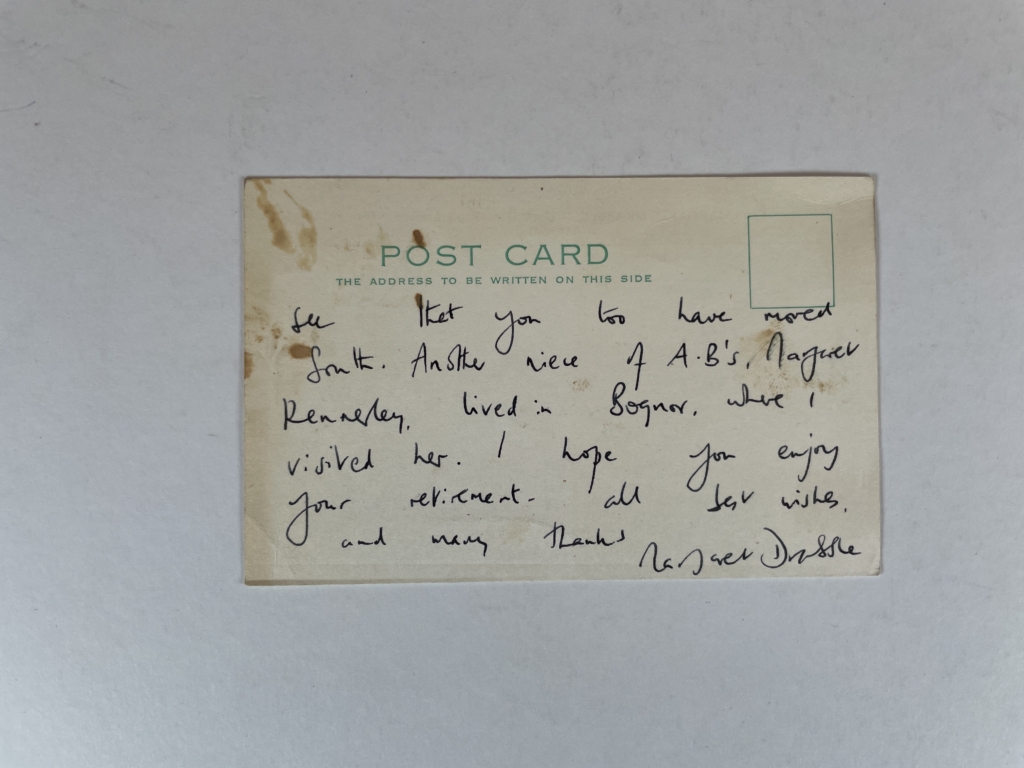 POST CARD
THE ADDRESS TO BE WRITTEN ON THIS SIDE
see that you too have moved
South. Another niece of A.B's, Margaret
Kennerley, lived in Bognor, where I
visited her. I hope you enjoy
your retirement - all best wishes,
and many thanks
Margaret Drabble